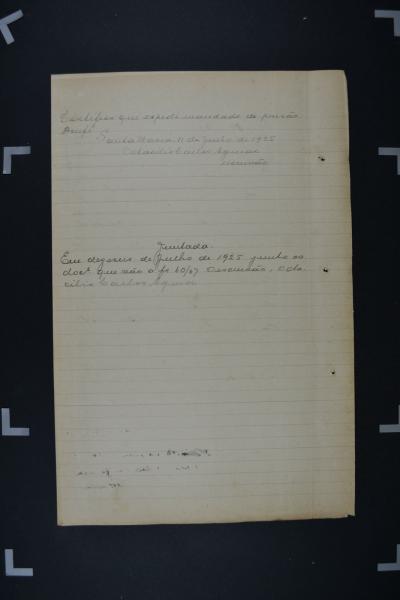 Certifico que expedi mandado de prisão
Doufé.
Santa Maria 11 de Junho de 1925
Octacilio Carlos Aguiar
escrivão
Juntada
Em dezeseis de Julho de 1925 junto os
docs que são a fs 60/67 O escrivão, Octa
cilio Carlos Aguiar